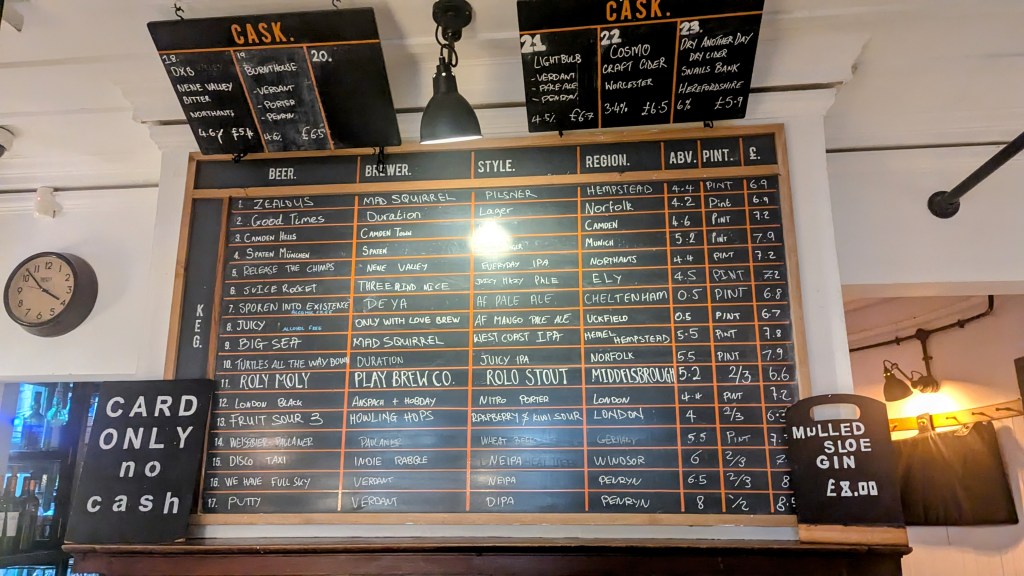 CASK.
18.
OXB
NENE VALLEY
BITTER
NORTHANTS
4.6%
19.
BURNTHOUSE
- VERDANT
- PORTER
- PENRYN
4.6%
£6.5
20.
CASK.
21
LIGHTBULB
- VERDANT
- PALE ALE
- PENRYN
4.5% £6.7
22
COSMO
CRAFT CIDER
WORCESTER
3.4% £6.5
23.
DRY ANOTHER DAY
DRY CIDER
SNAILS BANK
HEREFORDSHIRE
6% £5.9
BEER. BREWER. STYLE. REGION. ABV. PINT. £.
KEG.
1. ZEALOUS MAD SQUIRREL PILSNER HEMPSTEAD 4.4 PINT 6.9
2. Good Times Duration Lager Norfolk 4.2 Pint 6.9
3. CAMDEN HELLS CAMDEN TOWN CAMDEN 4.6 PINT 7.2
4. SPATEN MÜNCHEN SPATEN MUNICH 5.2 PINT 7.9
5. RELEASE THE CHIMPS NENE VALLEY EVERYDAY IPA NORTHANTS 4.4 PINT 7.2
6. JUICE ROCKET THREE BLIND MICE JUICY HAZY PALE ELY 4.5 PINT 7.2
7. SPOKEN INTO EXISTENCE ALCOHOL FREE DEYA AF PALE ALE CHELTENHAM 0.5 PINT 6.8
8. JUICY ALCOHOL FREE ONLY WITH LOVE BREW AF MANGO PALE ALE UCKFIELD 0.5 PINT 6.7
9. BIG SEA MAD SQUIRREL WEST COAST IPA HEMEL HEMPSTEAD 5.5 PINT 7.8
10. TURTLES ALL THE WAY DOWN DURATION JUICY IPA NORFOLK 5.5 PINT 7.9
11. ROLY MOLY PLAY BREW CO. ROLO STOUT MIDDELSBROUGH 5.2 2/3 6.6
12. LONDON BLACK ANSPACH + HOBDAY NITRO PORTER LONDON 4.4 PINT 7.2
13. FRUIT SOUR 3 HOWLING HOPS RASPBERRY & KIWI SOUR LONDON 4 2/3
14. PAULANER WHEAT BEER GERMANY 5.5 PINT
15. DISCO TAXI INDIE RABBLE NEIPA WINDSOR 6 2/3
16. WE HAVE FULL SKY VERDANT NEIPA PENRYN 6.5 2/3 8
17. PUTTY VERDANT DIPA PENRYN 8 1/2
CARD
ONLY
no
cash
MULLED
SLOE
GIN
£8.00
12
1
2
3
4
5
6
7
8
9
10
11